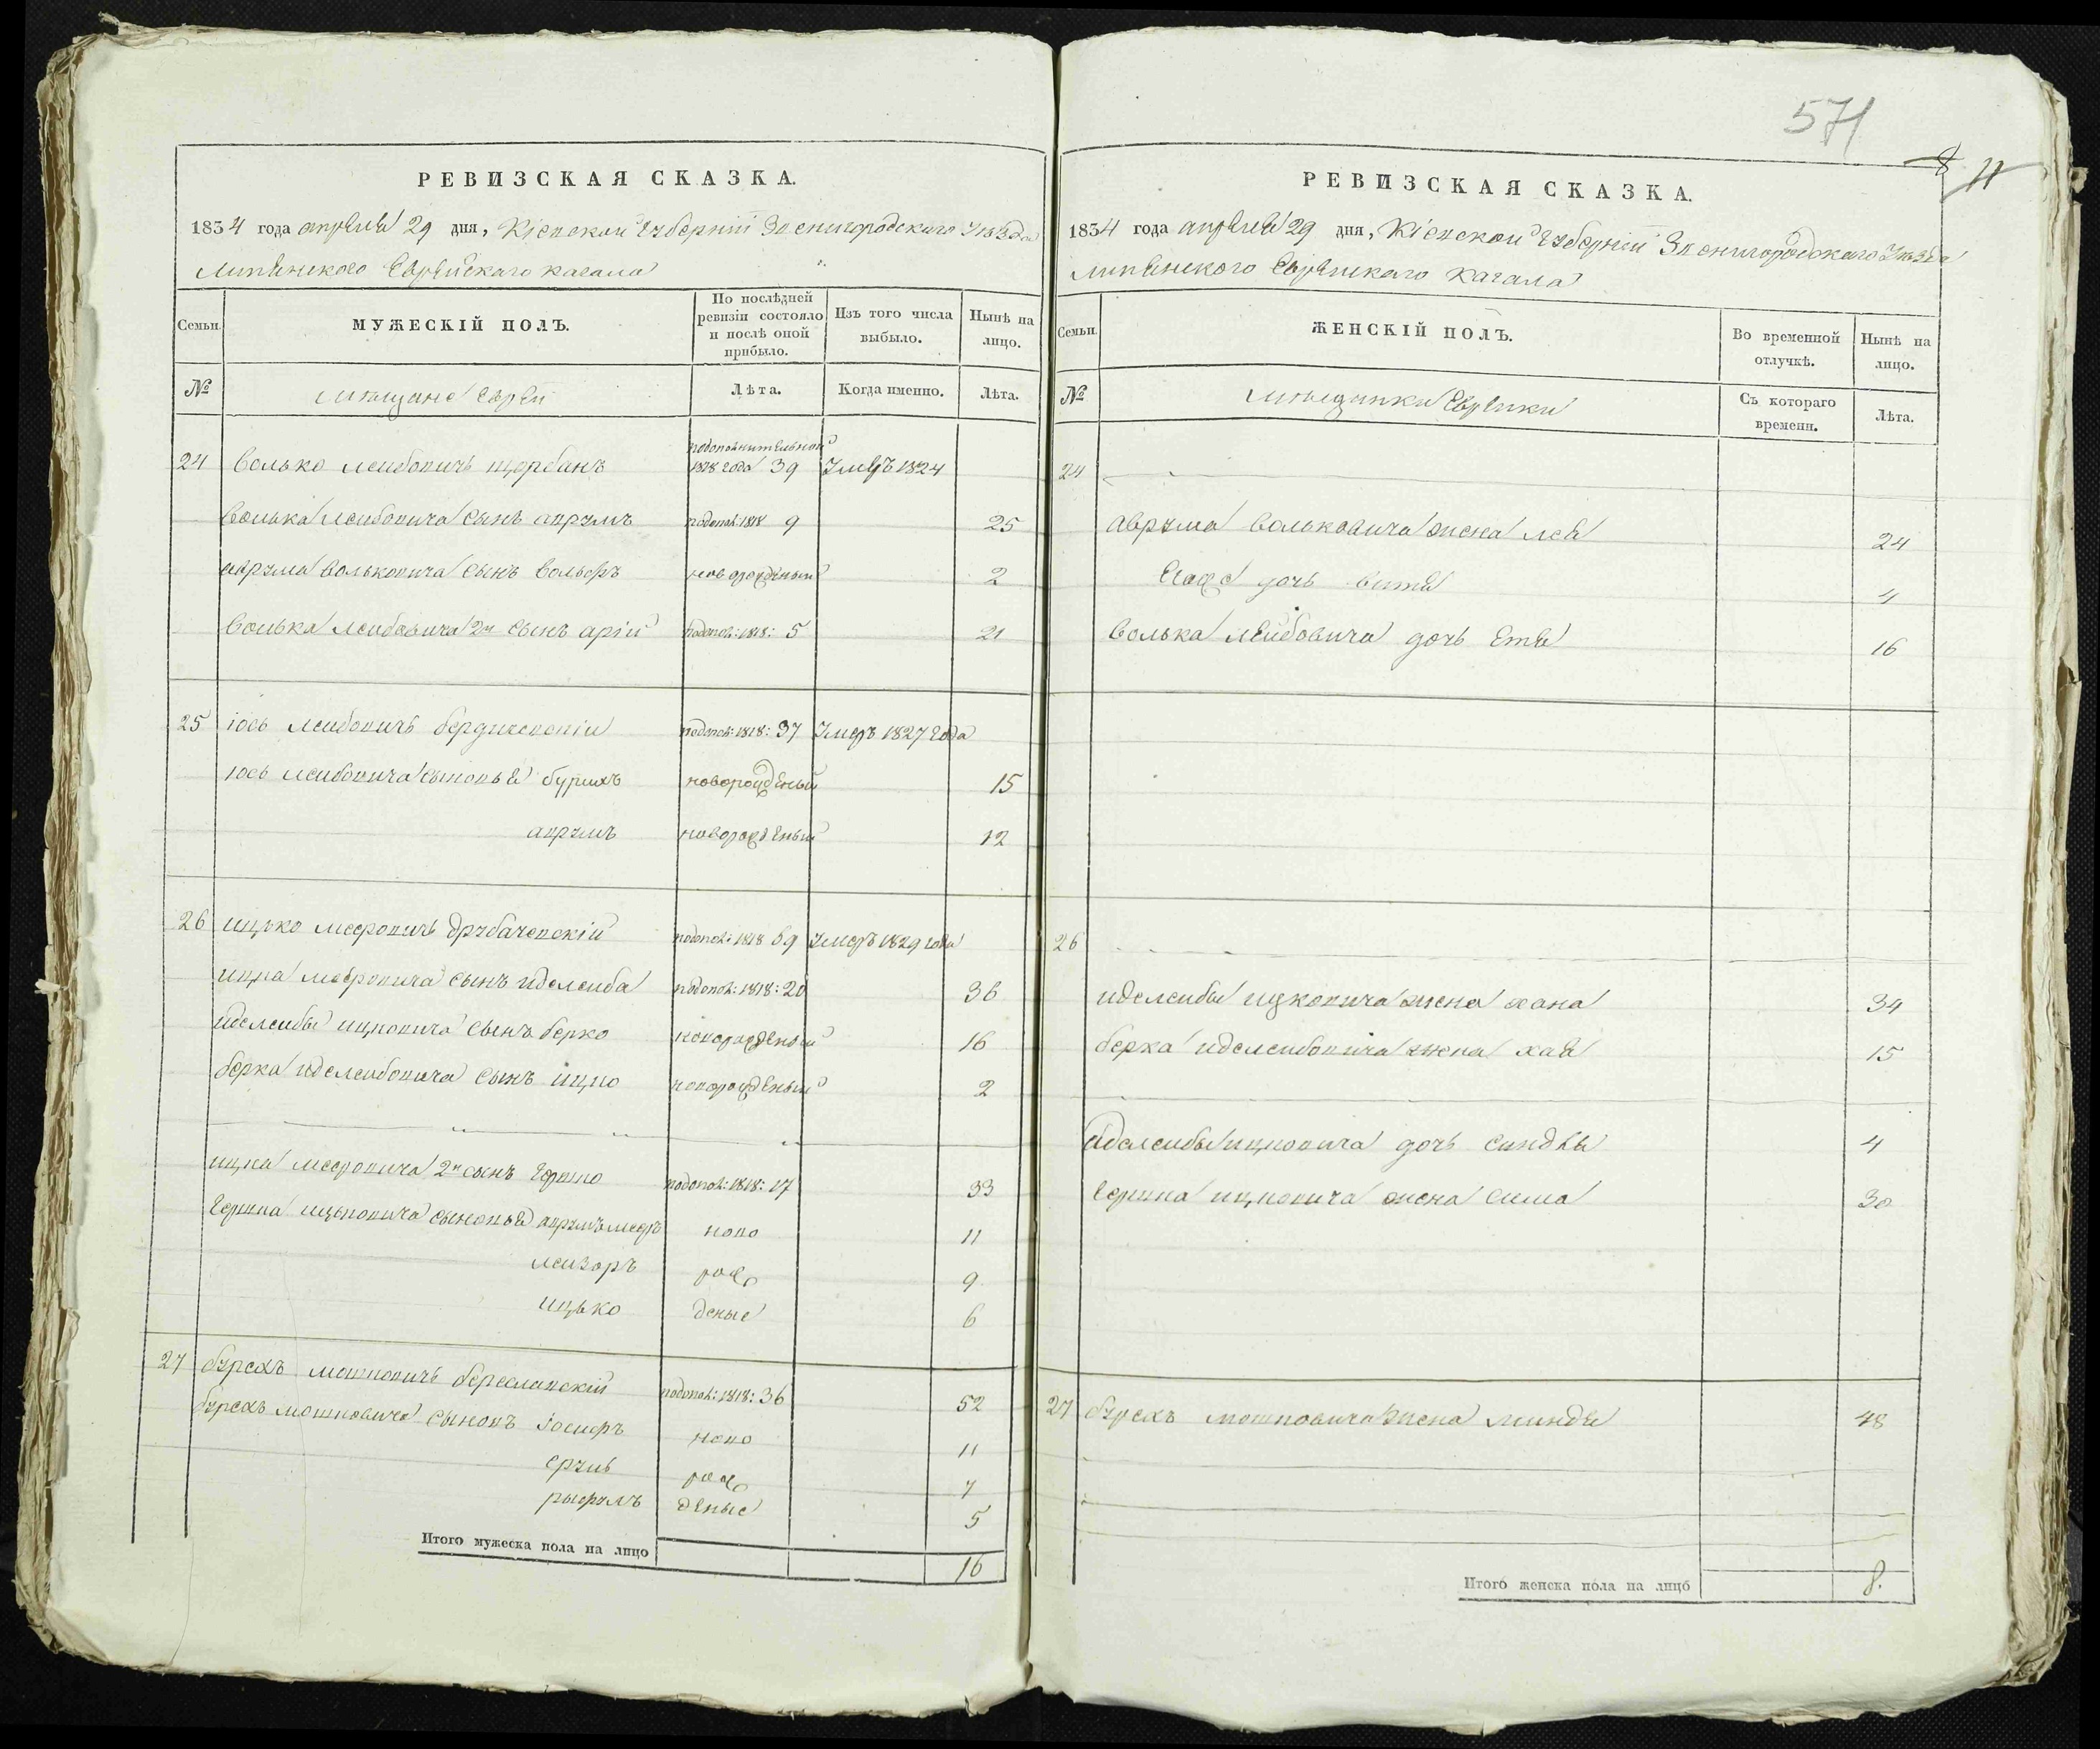 РЕВИЗСКАЯ СКАЗКА.
1834 года апреля 29 дня, Кіевской Губерніи Звенигородского Уезда
Еврейскаго кагала
Семьи.
МУЖЕСКІЙ ПОЛЪ.
По послѣдней ревизіи состояло и послѣ оной прибыло.
Изъ того числа выбыло.
Нынѣ на лицо.
№
мещане евреи
Лѣта.
Когда именно.
Лѣта.
24 Волько Лейбовичъ Щербанъ 1818 года 39 Умеръ 1824
Волька Лейбовича сынъ Аврумъ подопол: 1818 9 25
Аврума Вольковича сынъ Вольфъ новорожденый 2
Волька Лейбовича 2й сынъ Арій подопол: 1818: 5 21
25 Іось Лейбовичъ Бердичевскій подопол: 1818: 37 Умеръ 1827 года
Іось Лейбовича сыновья Бурихъ новорожденый 15
Аврумъ новорожденый 12
26 Ицько Мееровичъ подопол: 1818 59 Умеръ 1829 года
Ицка Мееровича сынъ Иделейба подопол: 1818: 20 36
Иделейбы Ицковича сынъ Берко новорожденый 16
Берка Иделейбовича сынъ Ицко новорожденый 2
Ицка Мееровича 2й сынъ Гершко подопол: 1818: 17 33
Гершка Ицьковича сыновья Аврумъ Меръ ново 11
Лейзоръ рож 9
Ицько деные 6
27 Бурехъ Мошковичъ Береславскій подопол: 1818: 36 52
Бурехъ Мошковича сыновъ Іосифъ ново 11
Сруль рож 7
деные 5
Итого мужеска пола на лицо 16
571
8 11
РЕВИЗСКАЯ СКАЗКА.
1834 года апреля 29 дня, Кіевской Губерніи Звенигородскаго Уезда
Еврейскаго кагала
Семьи.
ЖЕНСКІЙ ПОЛЪ.
Во временной отлучкѣ.
Нынѣ на лицо.
№
мещанки еврейки
Съ котораго времени.
Лѣта.
24
Аврума Вольковича жена Лея 24
дочь 4
Волька Лейбовича дочь Етя 16
26
Иделейбы Ицковича жена Хана 34
Берка Иделейбовича жена Хая 15
Иделейбы Ицковича дочь Синдля 4
Гершка Ицковича жена Сима 30
27 Бурехъ Мошковича жена Миндя 48
Итого женска пола на лицо 8.